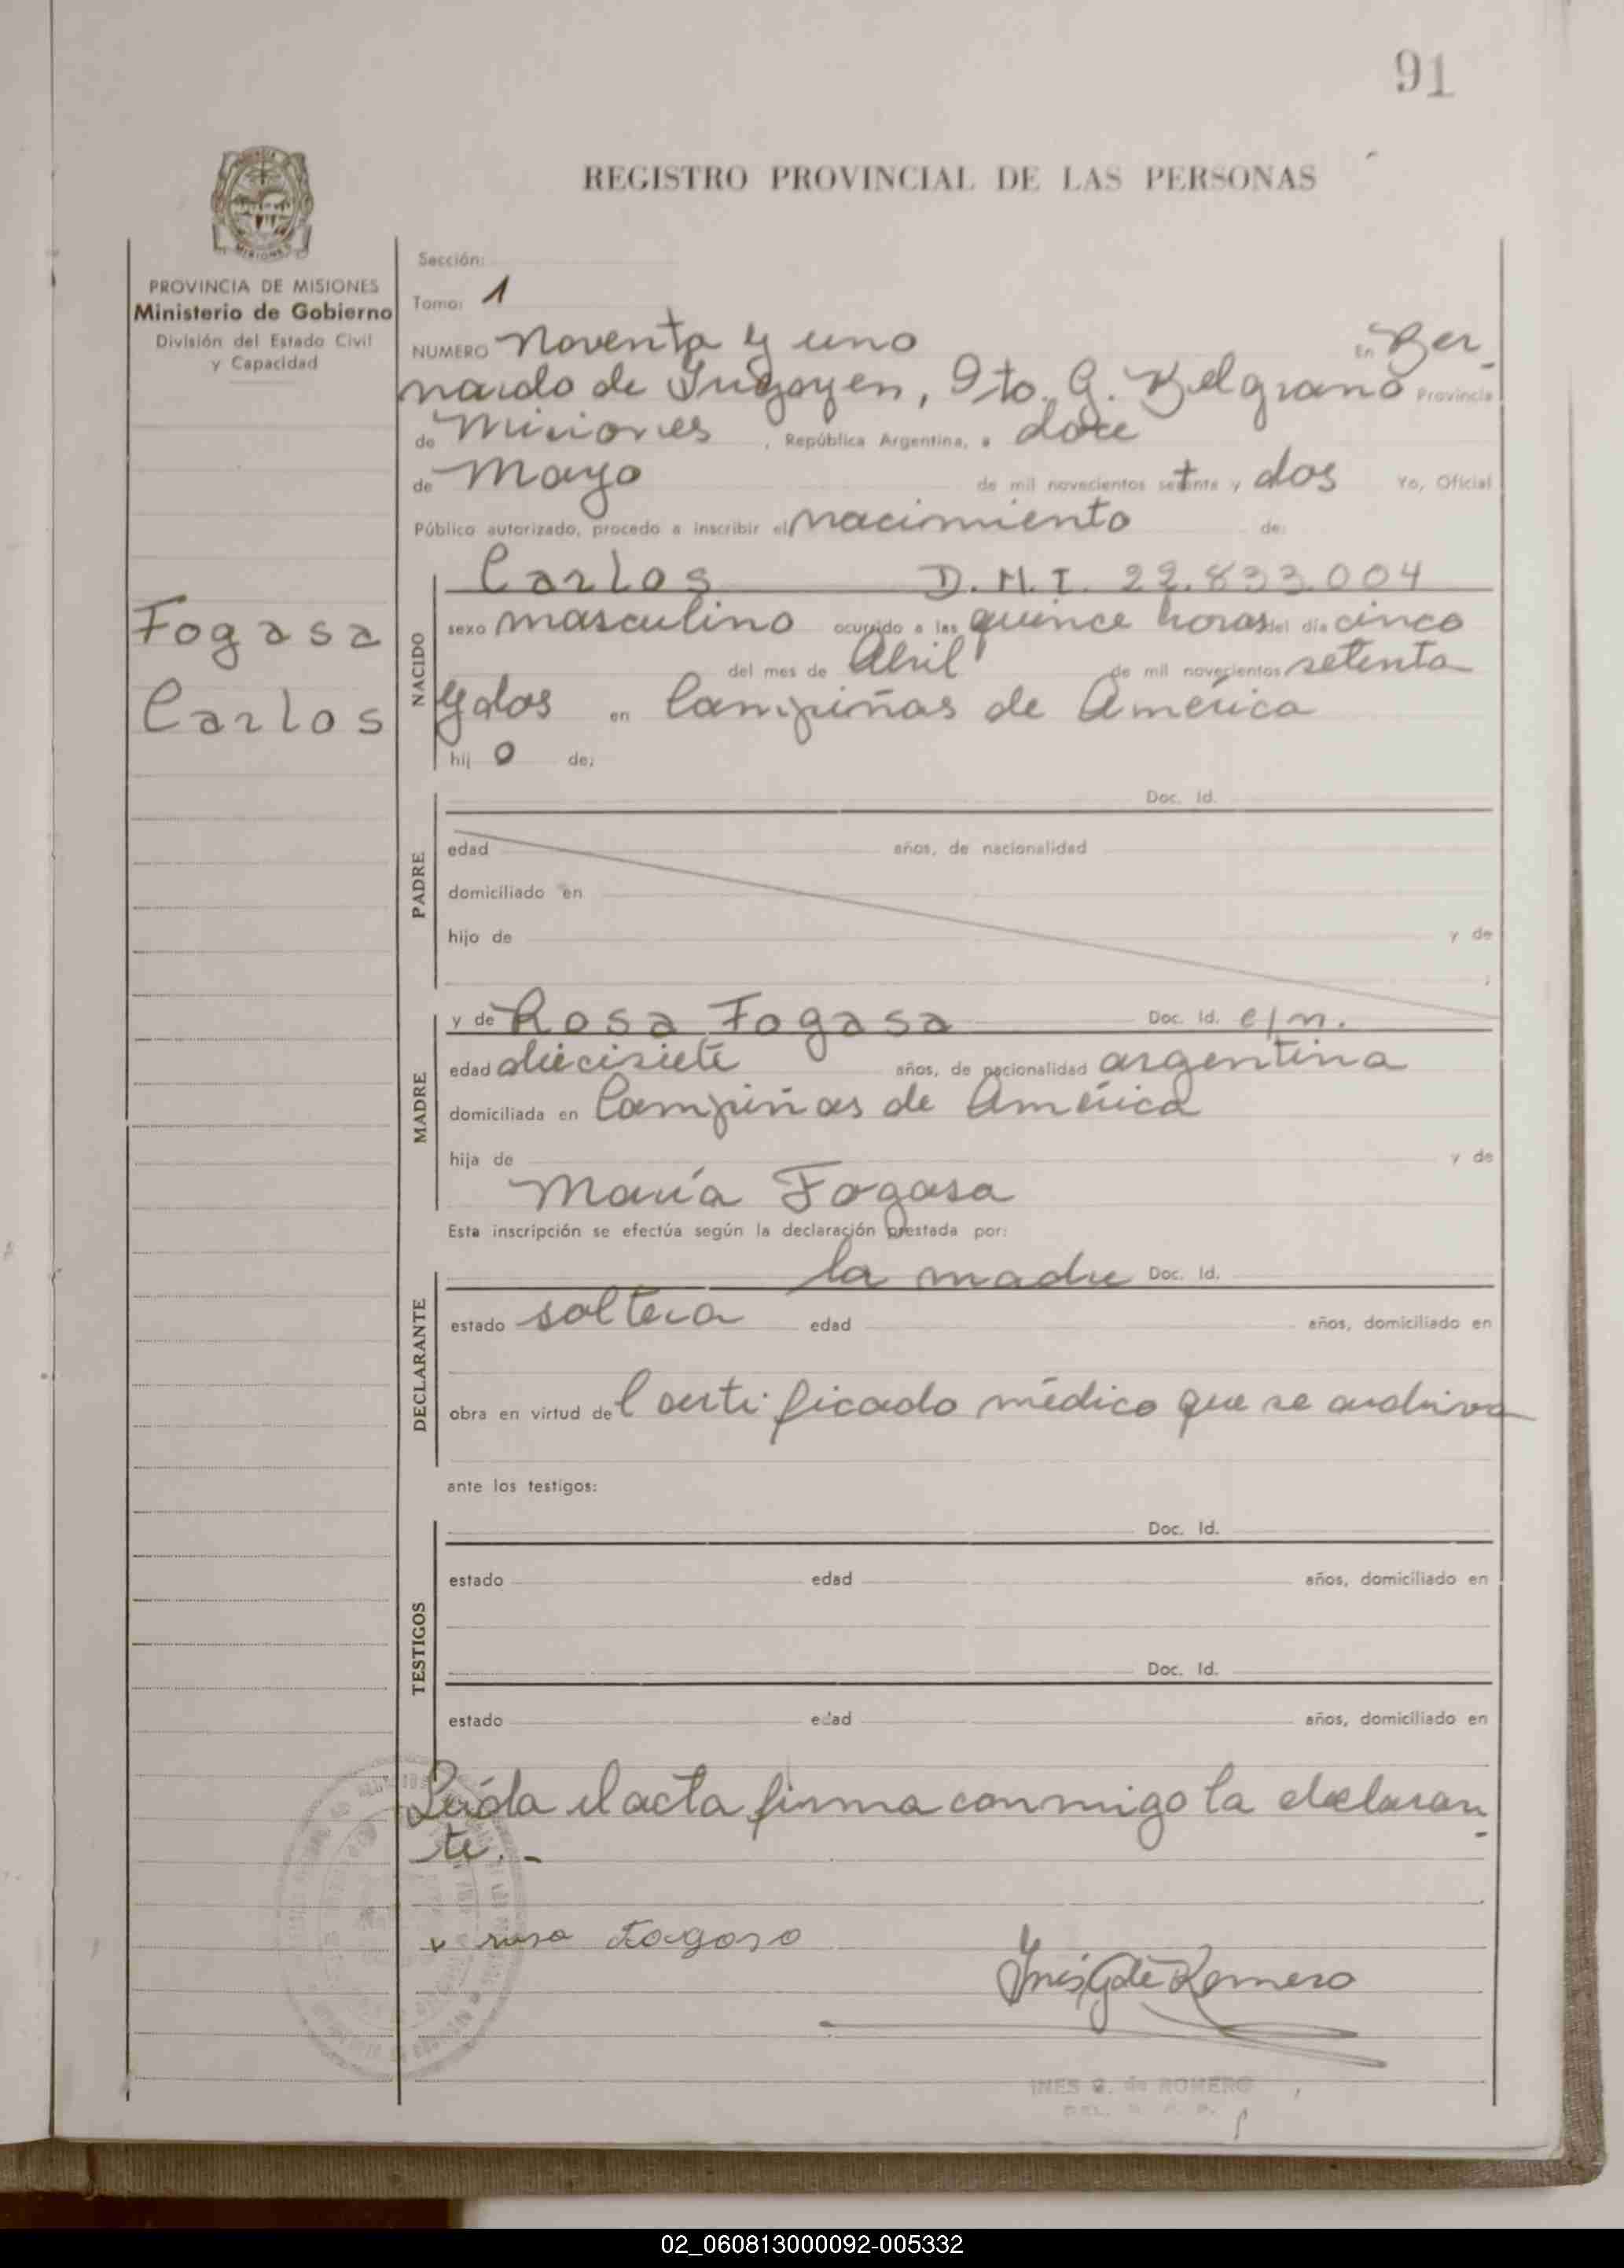 91
REGISTRO PROVINCIAL DE LAS PERSONAS
MISIONES
PROVINCIA DE MISIONES
Ministerio de Gobierno
División del Estado Civil
y Capacidad
Fogasa
Carlos
Sección:
Tomo: 1
NUMERO Noventa y uno En Ber-
nardo de Irigoyen, Dto. G. Belgrano Provincia
de Misiones, República Argentina, a doce
de Mayo de mil novecientos setenta y dos Yo, Oficial
Público autorizado, procedo a inscribir el nacimiento de:
NACIDO
Carlos D.N.I. 22.833.004
sexo masculino ocurrido a las quince horas del día cinco
del mes de Abril de mil novecientos setenta
y dos en Campiñas de América
hijo de:
PADRE
Doc. Id.
edad años, de nacionalidad
domiciliado en
hijo de y de
MADRE
y de Rosa Fogasa Doc. Id. e/n.
edad diecisiete años, de nacionalidad argentina
domiciliada en Campiñas de América
hija de y de
María Fogasa
Esta inscripción se efectúa según la declaración prestada por:
DECLARANTE
la madre Doc. Id.
estado soltera edad años, domiciliado en
obra en virtud del certificado médico que se archiva
ante los testigos:
TESTIGOS
Doc. Id.
estado edad años, domiciliado en
Doc. Id.
estado edad años, domiciliado en
Leída el acta firma conmigo la declaran-
te.-
rosa Fogaso
Inés G de Romero
INES G. de ROMERO
02_060813000092-005332